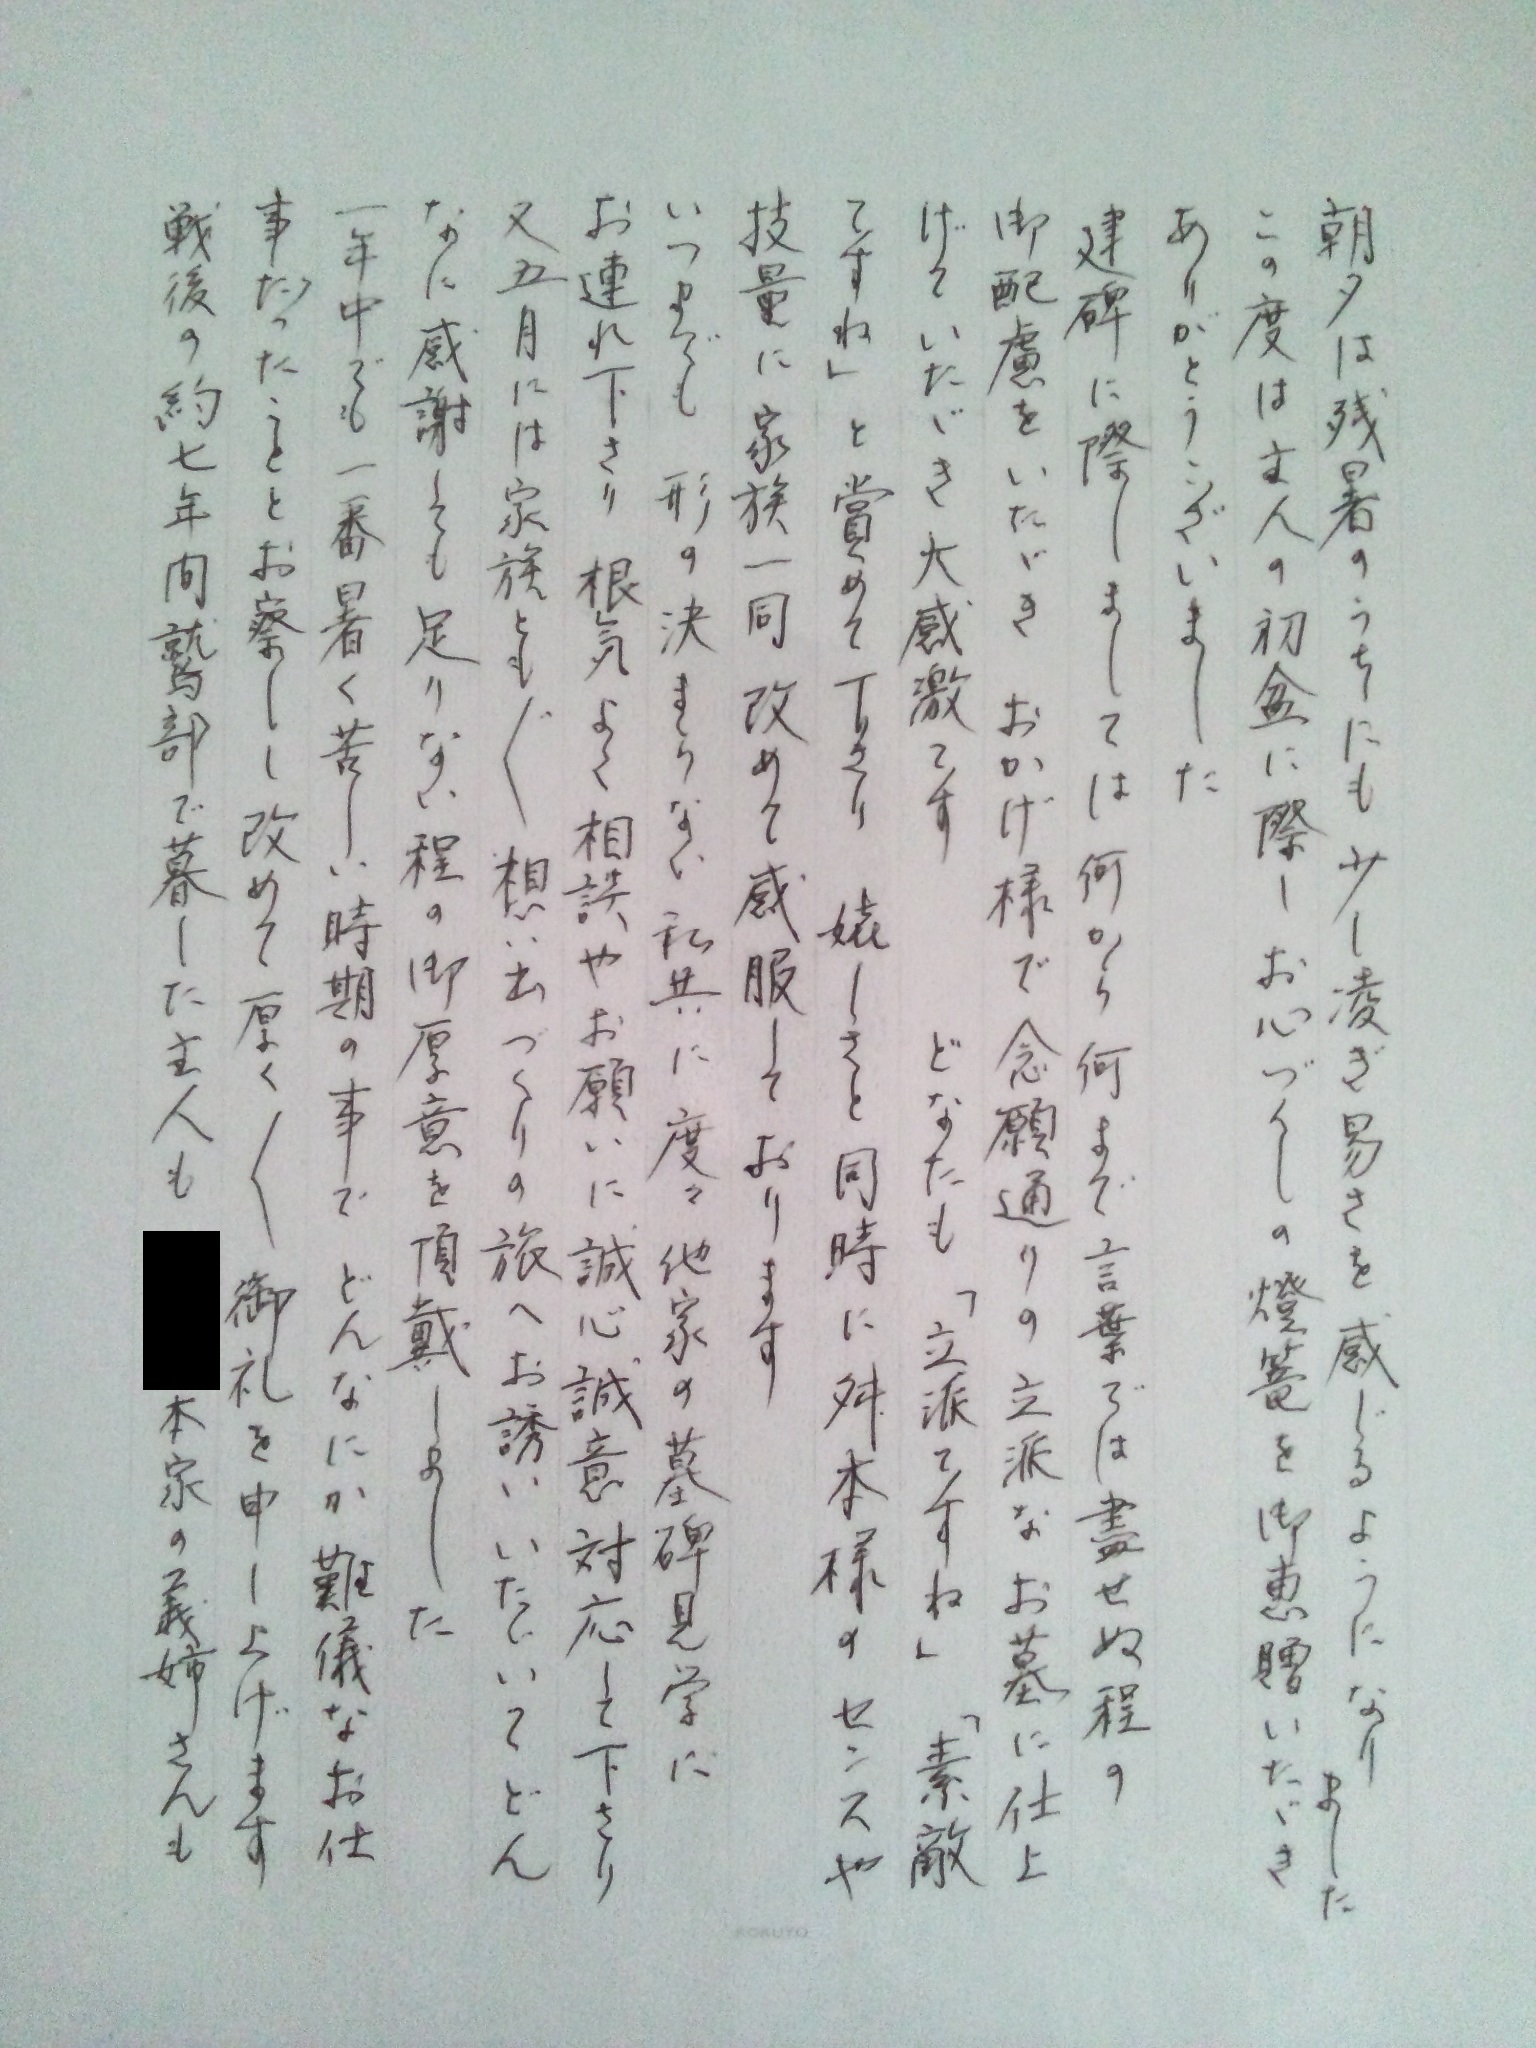 朝夕は残暑のうちにも少し凌ぎ易さを感じるようになりました
この度は主人の初盆に際しお心づくしの燈篭を御恵贈いただき
ありがとうございました
建碑に際しましては何から何まで言葉では盡せぬ程の
御配慮をいただき おかげ様で念願通りの立派なお墓に仕上
げていただき大感激です どなたも「立派ですね」「素敵
ですね」と賞めて下さり 嬉しさと同時に舛本様のセンスや
技量に家族一同改めて感服しております
いつまでも 形の決まらない私共に度々他家の墓碑見学に
お連れ下さり 根気よく相談やお願いに誠心誠意対応して下さり
又五月には家族とも〴〵想い出づくりの旅へお誘いいただいてどん
なに感謝しても足りない程の御厚意を頂戴しました
一年中でも一番暑く苦しい時期の事で どんなにか難儀なお仕
事だったこととお察しし 改めて厚く〱御礼を申し上げます
戦後の約七年間鷲部で暮した主人も 本家の義姉さんも
KOKUYO